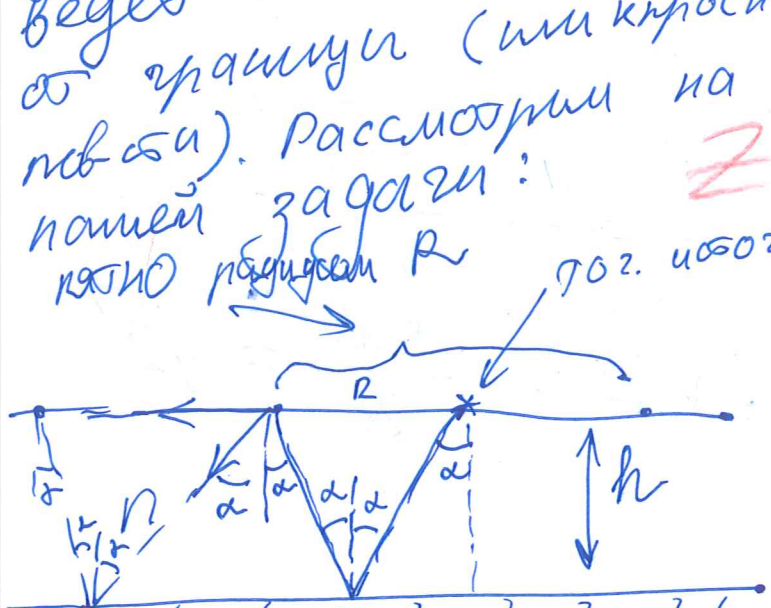 ведёт
от границы (или к просто
пов-сти). Рассмотрим на
нашей задачи:
Z
пятно радиусом R
точ. источ
R
α α α α α
h
n
γ γ γ